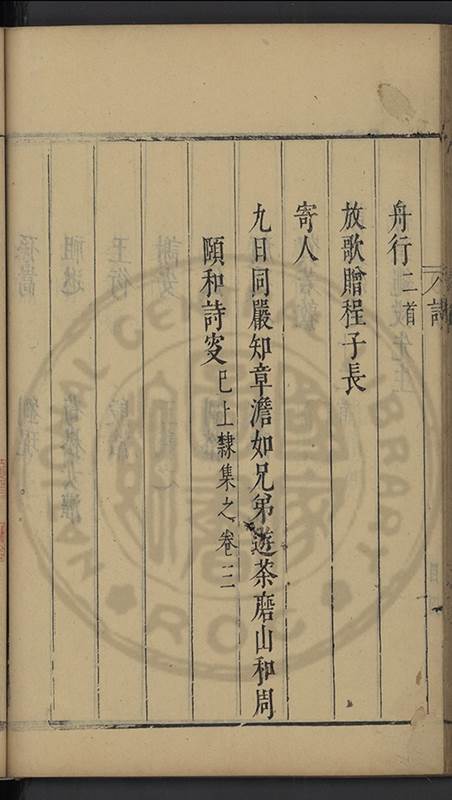 舟行二首
放歌贈程子長
寄人
九日同嚴知章澹如兄弟遊茶磨山和周
頤和詩
已上隸集之卷